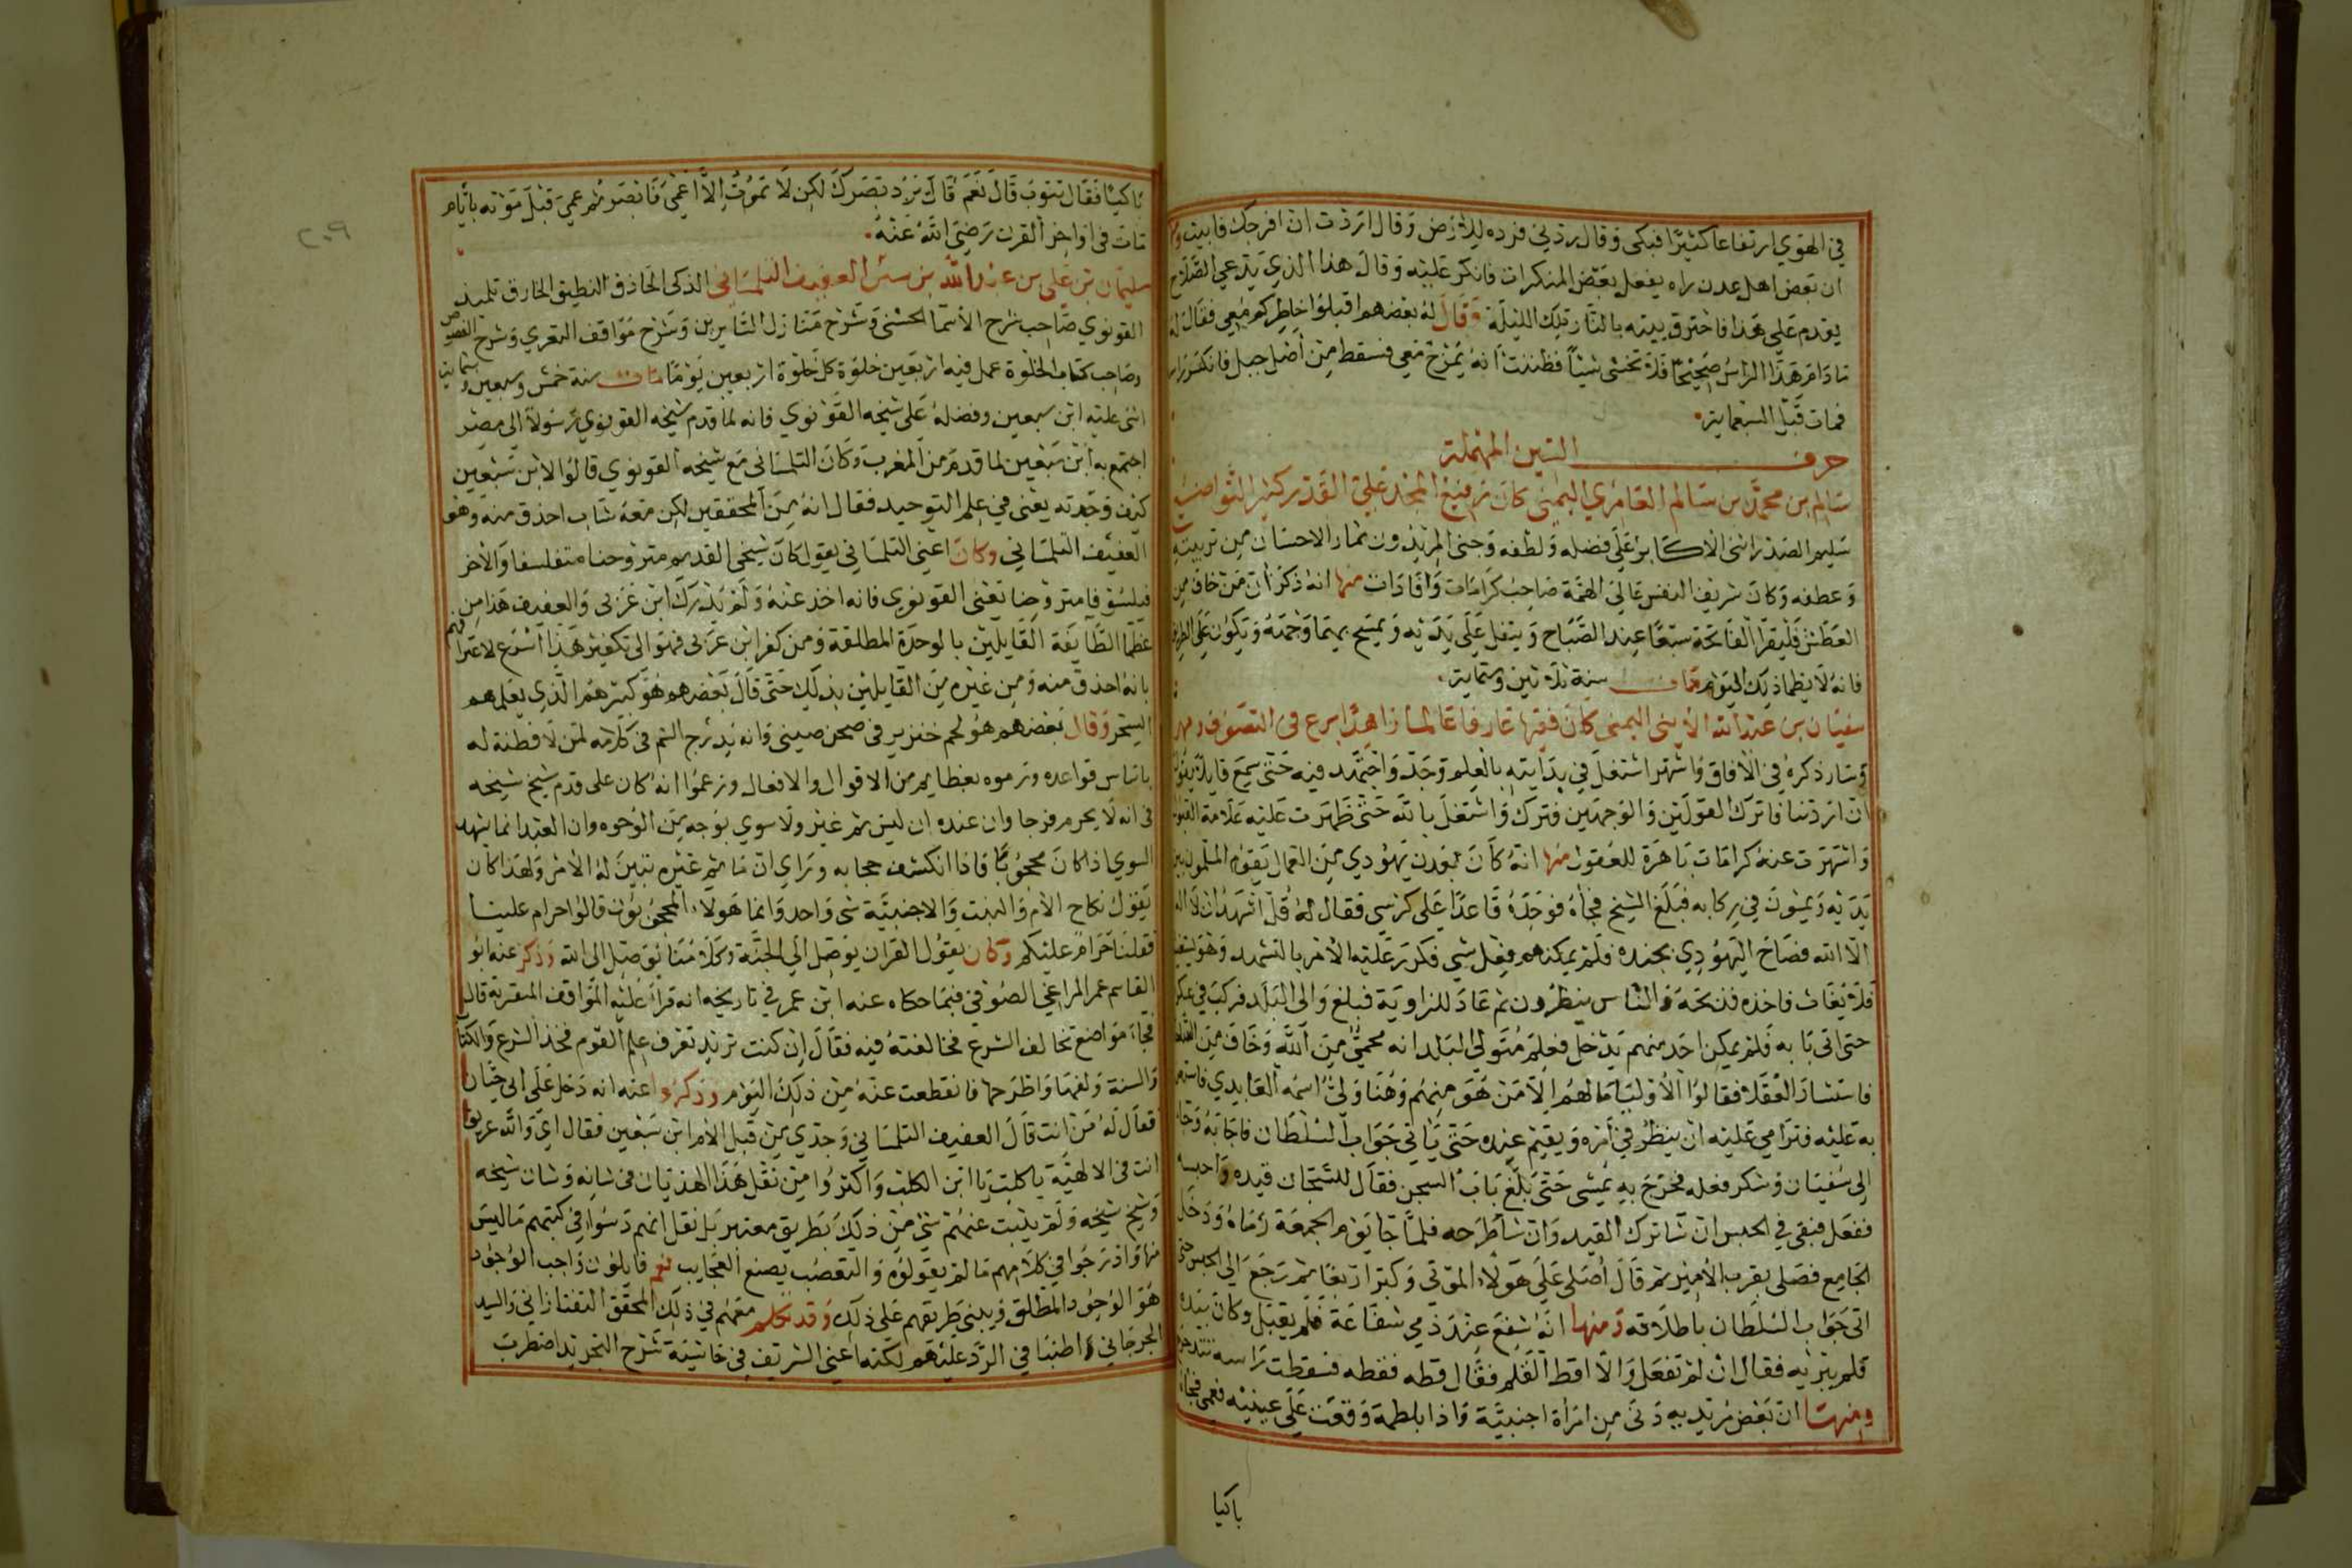 في الهوي ارتفاعا كثيرا فبكى وقال ردني فرده للارض وقال اردت ان افرجك فابيت
ان بعض اهل عدن راه يفعل بعض المنكرات فانكر عليه وقال هذا الذي يدعي الصلاح
يقدم على هذا فاحترق بيته بالنار تلك الليلة وقال له بعضهم اقبلوا خاطركم معي فقال له
مادام هذا الراس صحيحا فلا تخشى شيئا فظننت انه يمزح معي فسقط من اصل جبل فانكسر
فمات قبل السبعماية
حرف السين المهملة
سالم بن محمد بن سالم العامري اليمني كان رفيع المجد علي القدر كثير التواضع
سليم الصدر اثنى الاكابر على فضله ولطفه وجنى المريدون ثمار الاحسان من تربيته
وعطفه وكان شريف النفس عالي الهمة صاحب كرامات وافادات منها انه ذكر ان من خاف من
العطش فليقرا الفاتحة سبعا عند الصباح ويتفل على يديه ويمسح بهما وجهه ويكون على الريق
فانه لا يظما ذلك اليوم مات سنة ثلاثين وستماية
سفيان بن عبد الله الابيني اليمني كان فقيها عارفا عالما زاهدا برع في التصوف ومهر
وسار ذكره في الافاق واشتهر اشتغل في بدايته بالعلم وجد واجتهد فيه حتى سمع قايلا يقول
ان اردتنا فاترك القولين والوجهين فترك واشتغل بالله حتى ظهرت عليه علامة القبول
واشتهرت عنه كرامات باهرة للعقول منها انه كان بعدن يهودي من العمال يقوم المسلمون بين
يديه ويمشون في ركابه فبلغ الشيخ فجاه فوجده قاعدا على كرسي فقال له قل اشهد ان لا اله
الا الله فصاح اليهودي بجنده فلم يمكنهم فعل شي فكرر عليه الامر بالتشهد وهو يستغيث
فلا يغاث فاخذه فذبحه والناس ينظرون ثم عاد للزاوية فبلغ والى البلد فركب في عسكر
حتى اتى بابه فلم يمكن احد منهم يدخل فعلم متولي البلد انه محمي من الله وخاف من
فاستشار العقلا فقالوا الاوليا ما لهم الا من هو منهم وهنا ولي اسمه العايدي
به عليه فترامي عليه ان ينظر في امره ويقيم عنده حتى ياتي جواب السلطان فاجابه وجا
الى سفيان وشكر فعله فخرج به يمشي حتى بلغ باب السجن فقال للسجان قيده واحبسه
ففعل فبقي في الحبس ان شا ترك القيد وان شا طرحه فلما جا يوم الجمعة رماه ودخل
الجامع فصلى بقرب الامير ثم قال اصلي على هولاء الموتى وكبر اربعا ثم رجع الى الحبس حتى
اتى جواب السلطان باطلاقه ومنها انه شفع عند ذمي شفاعة فلم يقبل وكان بيده
قلم يبريه فقال ان لم تفعل والا اقط القلم فقال قطه فقطه فسقطت راسه
ومنها ان بعض مريديه دنى من امراة اجنبية واذا بلطمة وقعت على عينيه فعمي فجاه
باكيا
٢٠٩
باكيا فقال تتوب قال نعم قال نرد بصرك لكن لا تموت الا اعمى فابصر ثم عمي قبل موته بايام
مات في اواخر القرن رضي الله عنه
سليمان بن علي بن عبد الله بن العفيف التلمساني الذكي الحاذق النطيق الخارق تلميذ
القونوي صاحب شرح الاسما الحسنى وشرح منازل السايرين وشرح مواقف النفري وشرح الفصوص
وصاحب كتاب الخلوة عمل فيه اربعين خلوة كل خلوة اربعين يوما مات سنة خمس وسبعين وستماية
اثنى عليه ابن سبعين وفضله على شيخه القونوي فانه لما قدم شيخه القونوي رسولا الى مصر
اجتمع به ابن سبعين لما قدم من المغرب وكان التلمساني مع شيخه القونوي قالوا لابن سبعين
كيف وجدته يعني في علم التوحيد فقال انه من المحققين لكن معه شاب احذق منه وهو
العفيف التلمساني وكان اعني التلمساني يقول كان شيخي القديم متروحنا متفلسفا والاخر
فيلسوفا متروحنا تعني القونوي فانه اخذ عنه ولم يدرك ابن عربي والعفيف هذا من
عظما الطايفة القايلين بالوحدة المطلقة ومن كفر ابن عربي فهو الى تكفير هذا اسرع لاعترافهم
بانه احذق منه ومن غيره من القايلين بذلك حتى قال بعضهم هو كبيرهم الذي يعلمهم
السحر وقال بعضهم هو لحم خنزير في صحن صيني وانه يدرج السم في كلامه لمن لا فطنة له
باساس قواعده ورموه بعظايم من الاقوال والافعال وزعموا انه كان على قدم شيخ شيخه
في انه لا يحرم فرجا وان عنده ان ليس ثم غير ولا سوي بوجه من الوجوه وان العبد انما يشهد
السوي اذا كان محجوبا فاذا انكشف حجابه وراي ان ما ثم غيره تبين له الامر ولهذا كان
يقول نكاح الام والبنت والاجنبية شي واحد وانما هولاء المحجوبون قالوا حرام علينا
فقلنا حرام عليكم وكان يقول القران يوصل الى الجنة وكلامنا يوصل الى الله وذكر عنه ابو
القاسم عمر المراغي الصوفي فيما حكاه عنه ابن عمر في تاريخه انه قرا عليه المواقف النفرية قال
فجاء مواضع تخالف الشرع فخالفته فيه فقال ان كنت تريد تعرف علم القوم فخذ الشرع والكتاب
والسنة ولفها واطرحها فانقطعت عنه من ذلك اليوم وذكروا عنه انه دخل على ابي حيان
فقال له من انت قال العفيف التلمساني وجدي من قبل الام ابن سبعين فقال اي والله عريق
انت في الالهية يا كلب يا ابن الكلب واكثروا من نقل هذا الهذيان في شانه وشان شيخه
وشيخ شيخه ولم يثبت عنهم شي من ذلك بطريق معتبر بل نقل انهم دسوا في كتبهم ما ليس
منها وادرجوا في كلامهم ما لم يقولوه والتعصب يصنع العجايب نعم قايلون واجب الوجود
هو الوجود المطلق ويبنى طريقهم على ذلك وقد تكلم معهم في ذلك المحقق التفتازاني والسيد
الجرجاني واطنبا في الرد عليهم لكنه اعني الشريف في حاشية شرح التجريد اضطرب